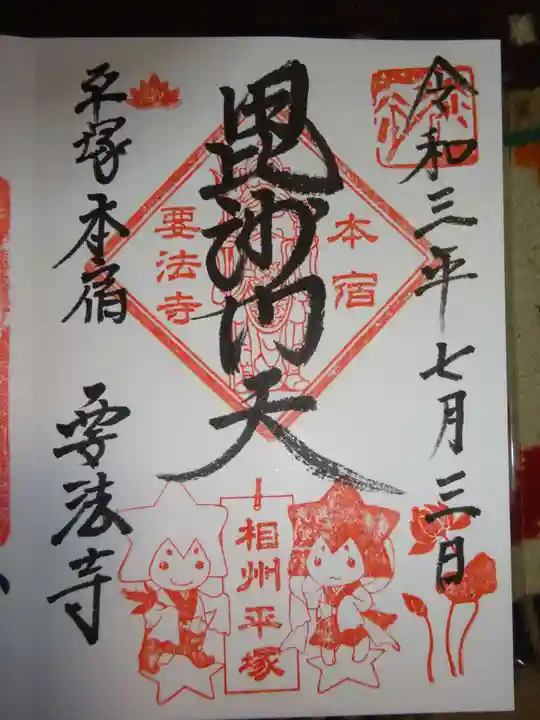 令和三年七月三日
毘沙門天
本宿
要法寺
平塚本宿 要法寺
相州平塚